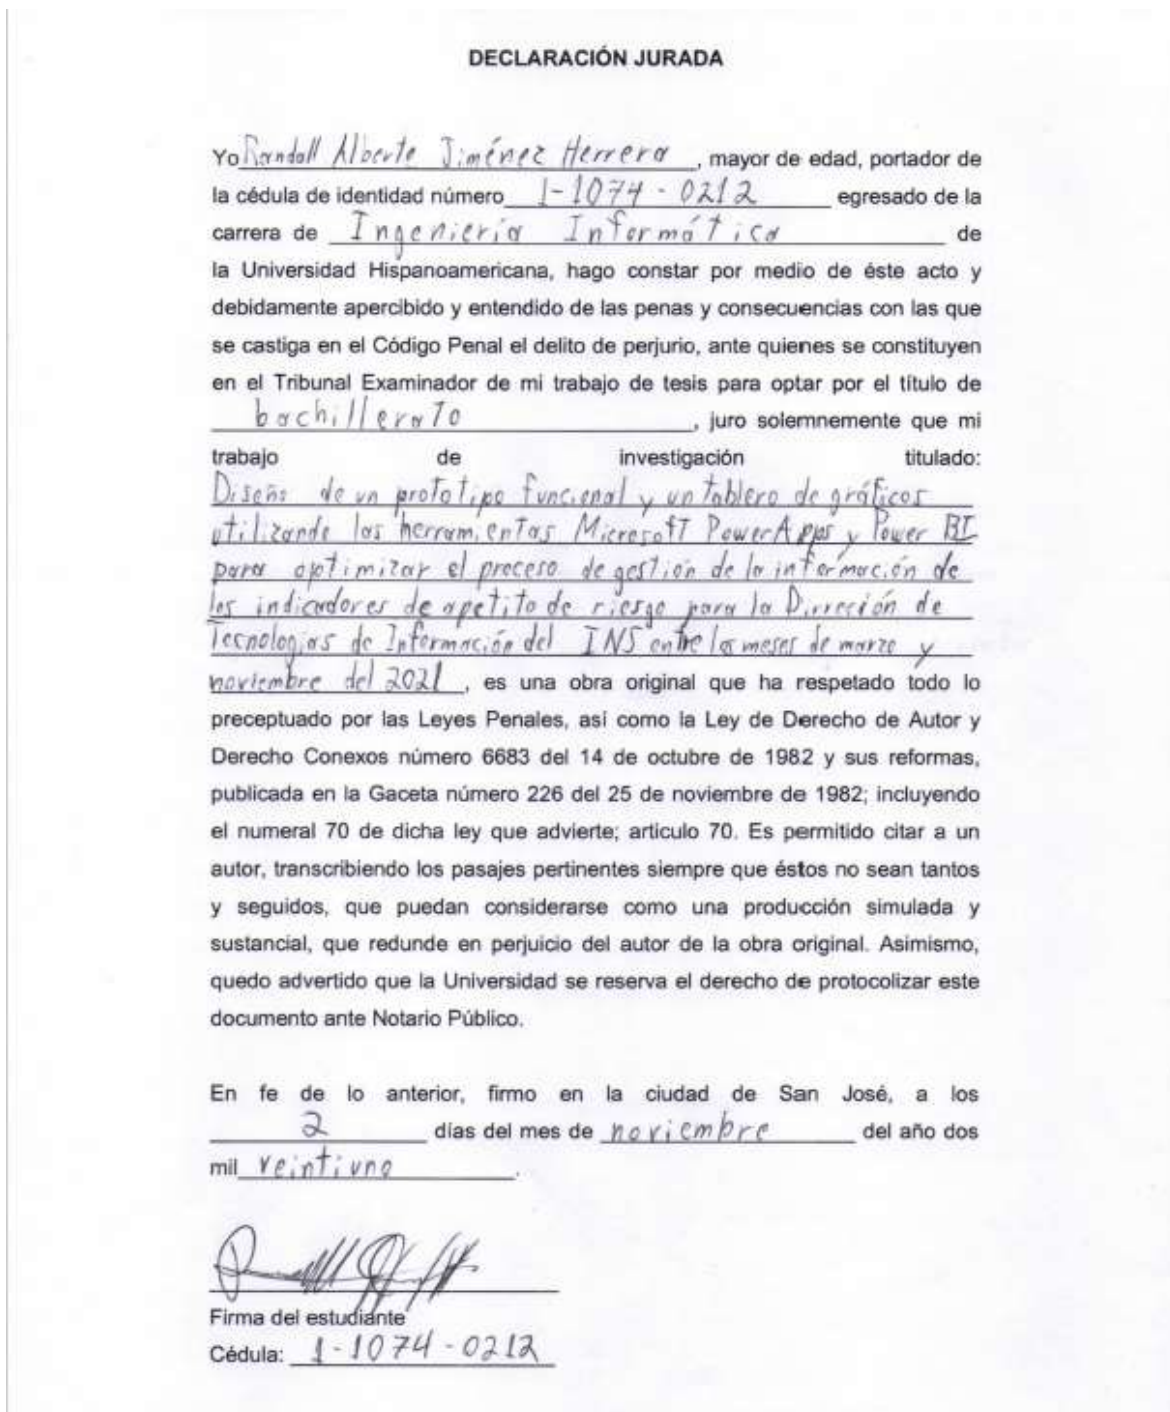 DECLARACIÓN JURADA
Yo Randall Alberto Jiménez Herrera, mayor de edad, portador de
la cédula de identidad número 1-1074-0212 egresado de la
carrera de Ingeniería Informática de
la Universidad Hispanoamericana, hago constar por medio de éste acto y
debidamente apercibido y entendido de las penas y consecuencias con las que
se castiga en el Código Penal el delito de perjurio, ante quienes se constituyen
en el Tribunal Examinador de mi trabajo de tesis para optar por el título de
bachillerato, juro solemnemente que mi
trabajo de investigación titulado:
Diseño de un prototipo funcional y un tablero de gráficos
utilizando las herramientas Microsoft PowerApps y Power BI
para optimizar el proceso de gestión de la información de
los indicadores de apetito de riesgo para la Dirreción de
Tecnologías de Información del INS entre los meses de marzo y
noviembre del 2021, es una obra original que ha respetado todo lo
preceptuado por las Leyes Penales, así como la Ley de Derecho de Autor y
Derecho Conexos número 6683 del 14 de octubre de 1982 y sus reformas,
publicada en la Gaceta número 226 del 25 de noviembre de 1982; incluyendo
el numeral 70 de dicha ley que advierte; articulo 70. Es permitido citar a un
autor, transcribiendo los pasajes pertinentes siempre que éstos no sean tantos
y seguidos, que puedan considerarse como una producción simulada y
sustancial, que redunde en perjuicio del autor de la obra original. Asimismo,
quedo advertido que la Universidad se reserva el derecho de protocolizar este
documento ante Notario Público.
En fe de lo anterior, firmo en la ciudad de San José, a los
2 días del mes de noviembre del año dos
mil veintiuno.
Firma del estudiante
Cédula: 1-1074-0212